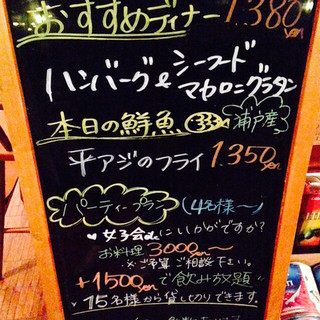 おすすめディナー 1.380 yen
ハンバーグ& シーフード
マカロニグラタン
本日の鮮魚 浦戸産
平アジのフライ 1.350 yen
パーティープラン (4名様〜)
♥女子会にいかがですか?
お料理 3000yen〜
※ご予算ご相談下さい。
+1500yenで飲み放題
15名様から貸し切りできます。